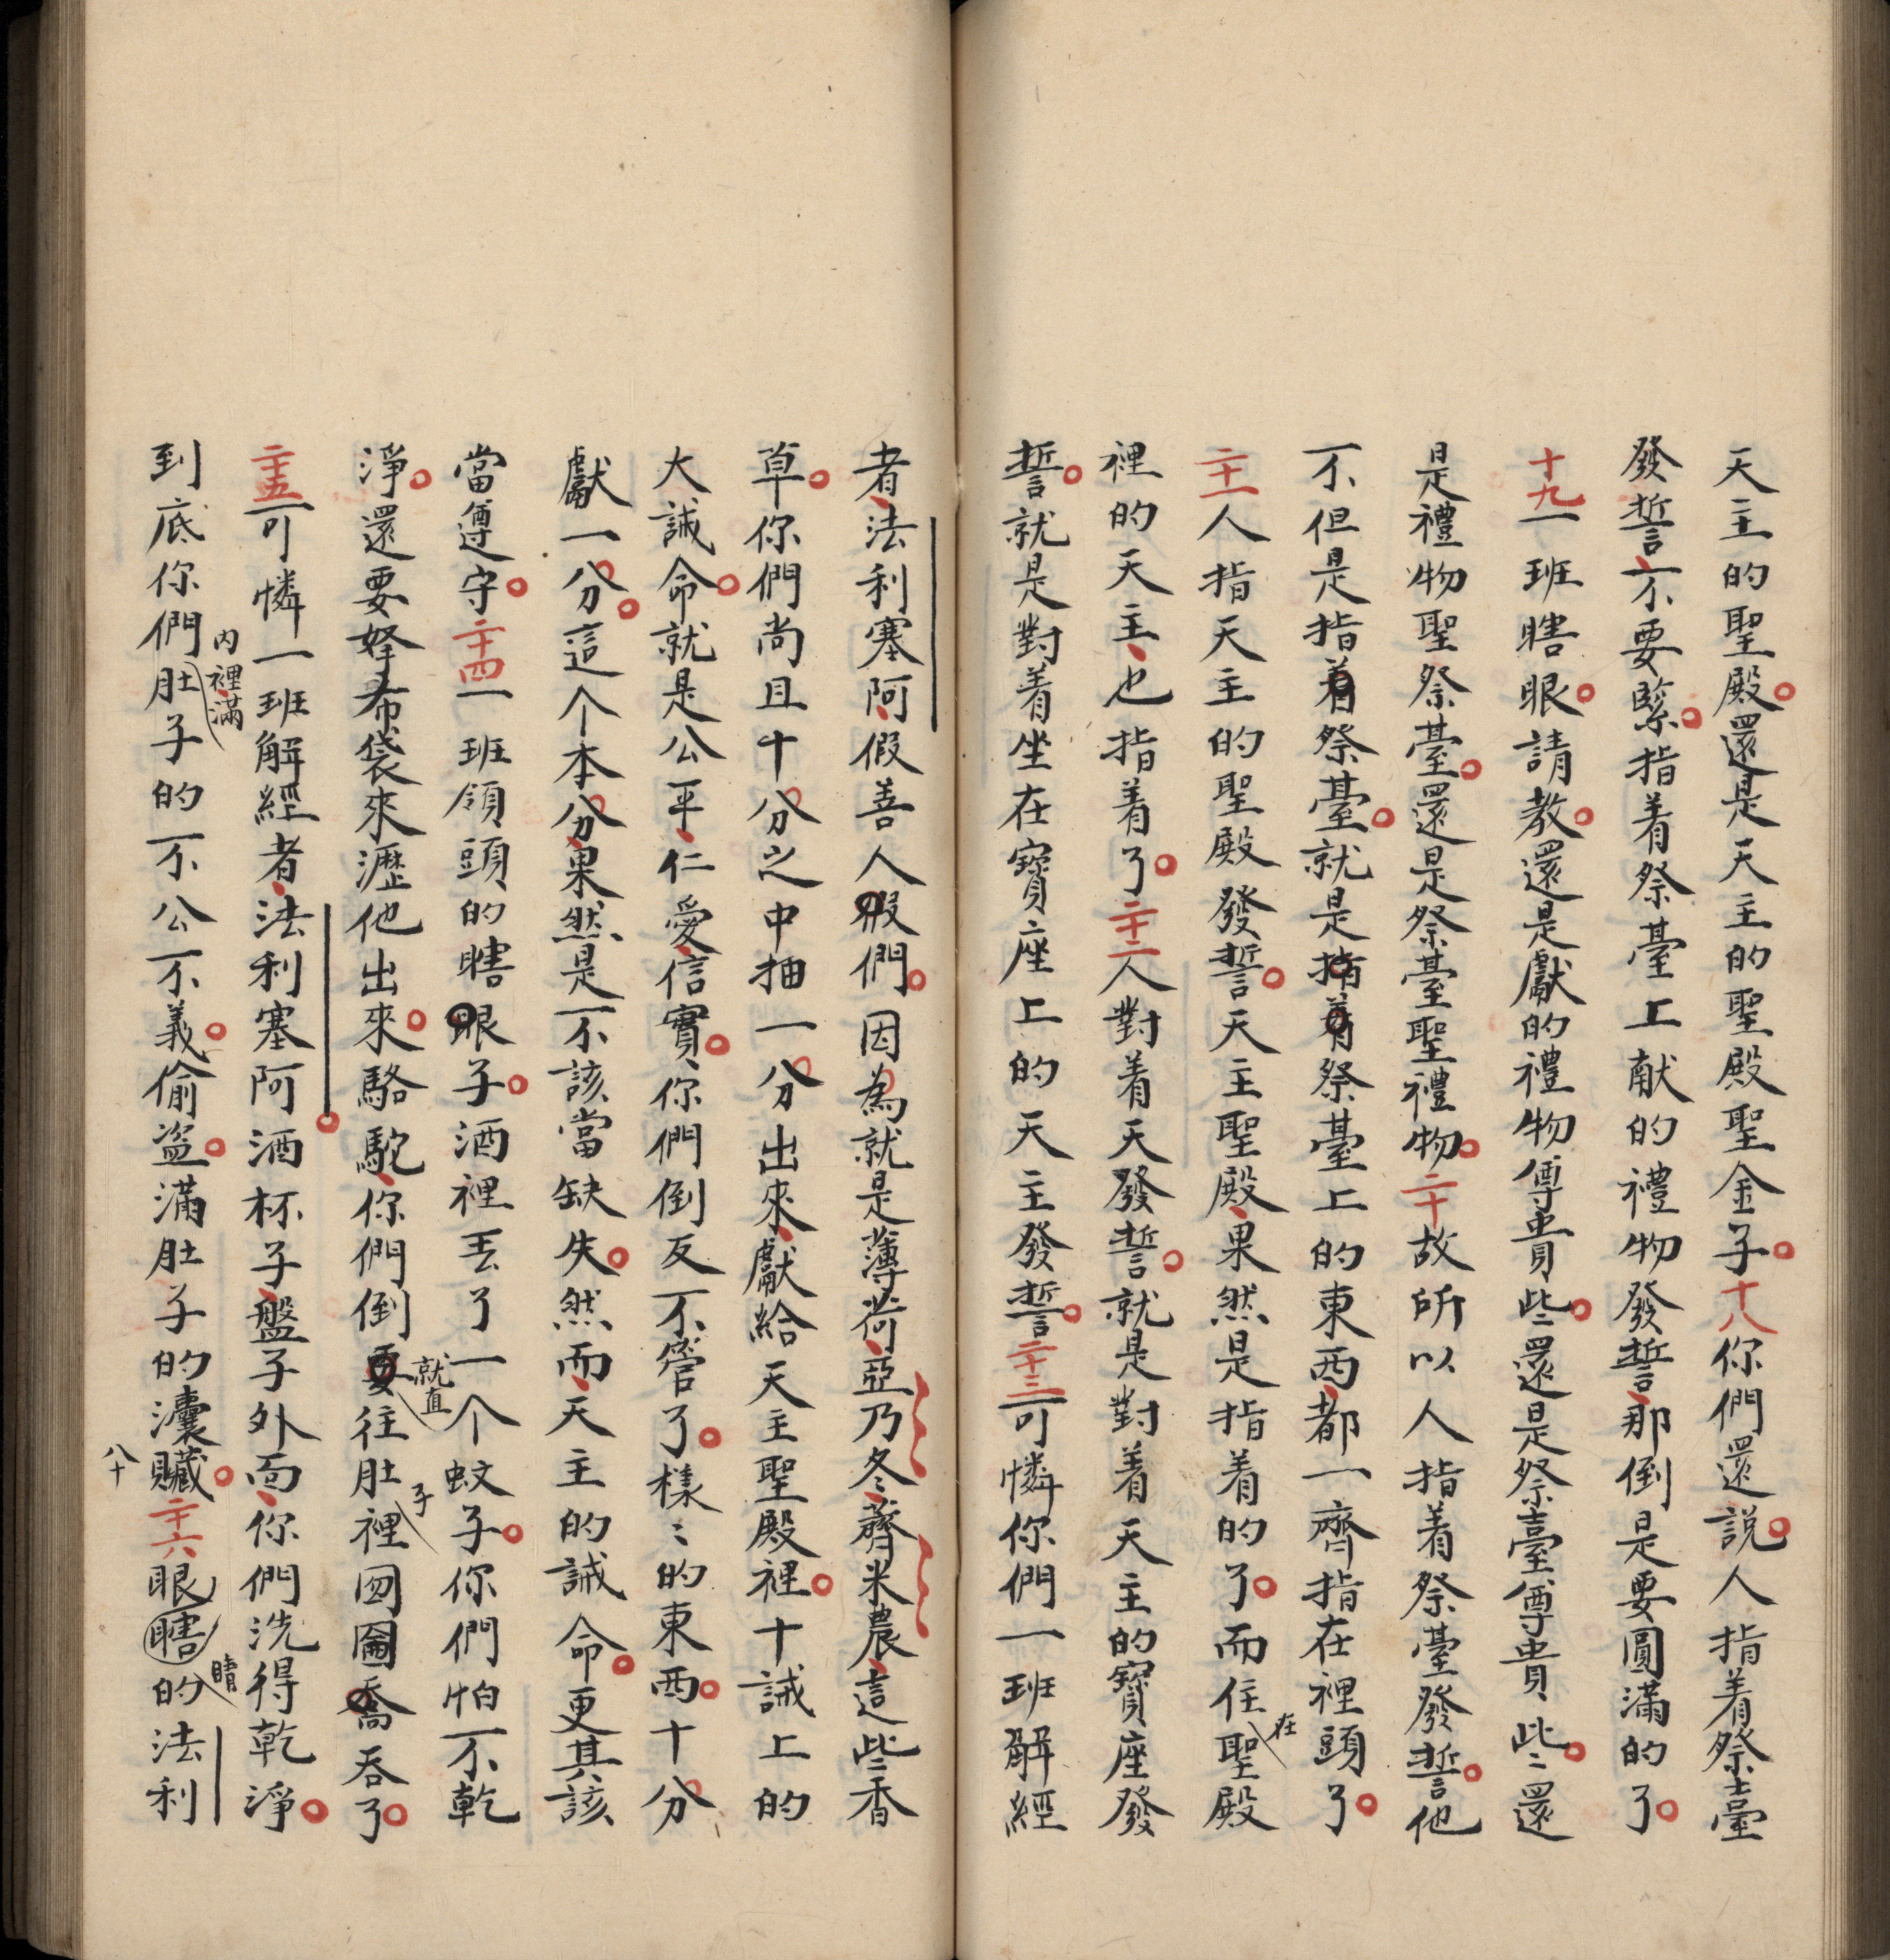 天主的聖殿還是天主的聖殿聖金子十八你們還說人指着祭臺
發誓不要緊指着祭臺上献的禮物發誓那倒是要圓滿的了
十九一班瞎眼請教還是獻的禮物尊貴些還是祭臺尊貴些還
是禮物聖祭臺還是祭臺聖禮物二十故所以人指着祭臺發誓他
不但是指着祭臺就是指着祭臺上的東西都一齊指在裡頭了
二十一人指天主的聖殿發誓天主聖殿果然是指着的了而住在聖殿
裡的天主也指着了二十二人對着天發誓就是對着天主的寶座發
誓就是對着坐在寶座上的天主發誓二十三可憐你們一班解經
者法利塞阿假善人假們因為就是薄荷亞乃冬薺米農這些香
草你們尚且十分之中抽一分出來獻給天主聖殿裡十誡上的
大誡命就是公平仁愛信實你們倒反不管了樣〻的東西十分
獻一分這个本分果然是不該當缺失然而天主的誡命更其該
當遵守二十四一班領頭的瞎眼子酒裡丟了一个蚊子你們怕不乾
淨還要拏布袋來瀝他出來駱駝你們倒要就直往肚子裡囫圇喬吞了
二十五可憐一班解經者法利塞阿酒杯子盤子外面你們洗得乾淨
到底你們內裡滿肚子的不公不義偷盜滿肚子的囊贓二十六眼瞎睛的法利
八十